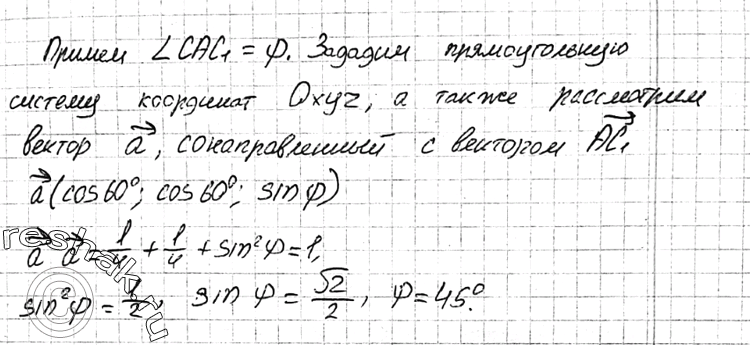 Примем ∠CAC₁ = φ. Зададим прямоугольную
систему координат Oxyz, а также рассмотрим
вектор a⃗, сонаправленный с вектором AC₁⃗
a⃗(cos60°; cos60°; sinφ)
a⃗ a⃗ = 1/4 + 1/4 + sin²φ = 1,
sin²φ = 1/2, sin φ = √2/2, φ = 45°.
reshak.ru